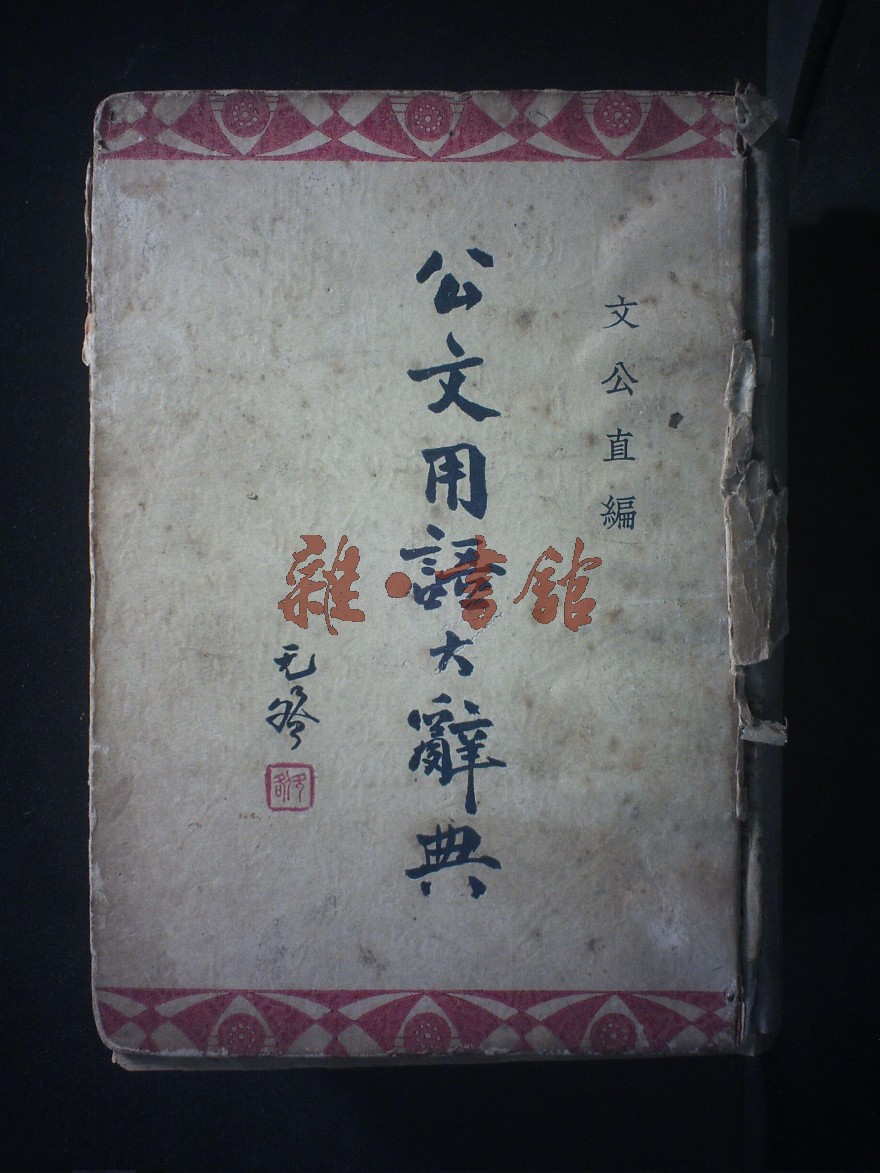 文公直編
公文用語大辭典
雜·書館